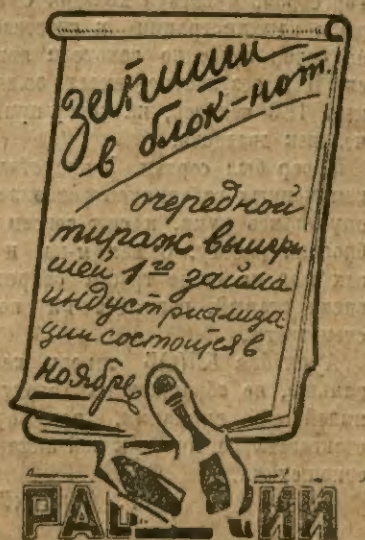 запиши
в блок-нот.
очередной
тираж выигры
шей 1го займа
индустриализа
ции состоится в
ноябре